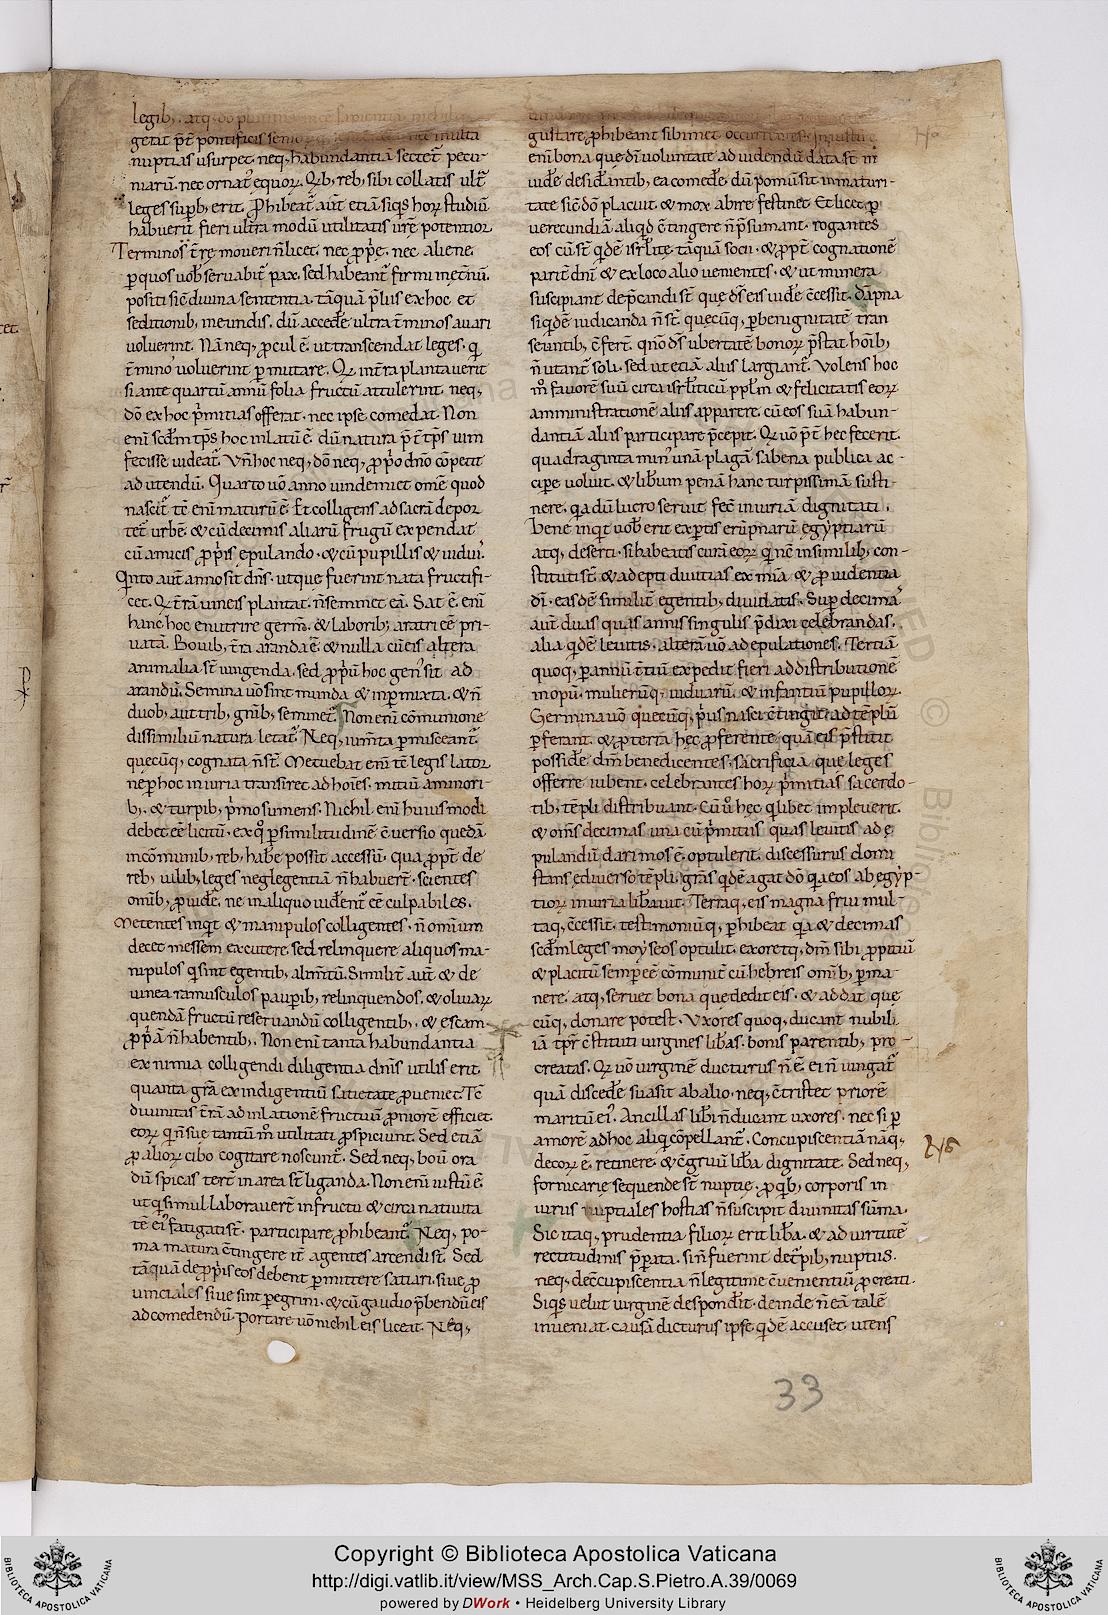 legib; atq; do plurima
gerat p̄t pontificis
nuptias usurpet. neq; habundantiā sectet̄ pecu-
niarū. nec ornat᷒ equoꝝ. Qb; reb; sibi collatis ult̄
leges sup̄b; erit. Phibeat̄ aut̄ etiā siqs hoꝝ studiū
habuerit fieri ultra modū utilitatis ur̄e potentior
Terminos t̄rę moueri n̄ licet. nec ꝓp̄e. nec aliene
ꝑ quos uob̄ seruabit̄ pax. sed habeant̄ firmi inet̄nū.
positi sic̄ divina sententia. tāquā p̄lus ex hoc et
seditionib; ineundis. dū accedēe ultra t̄minos auari
uoluerint. Nā neq; ꝓcul ē. ut transcendat leges. q̄
t̄mino᷒ uoluerint ꝑmutare. Qi int̄ra plantauerit
si ante quartū annū folia fructū attulerint. neq;
dō ex hoc p̄mitias offerat. nec ipse comedat. Non
enī scdm tp̄s hoc inlatū ē. dū natura p̄t̄ tp̄s uim
fecisse uideat̄. Vn̄ hoc neq; dō neq; ꝓp̄o dn̄o cōpetit
ad utendū. Quarto uō anno uindemiet om̄e quod
nascit̄ t̄c enī maturū ē. Et colligens ad sacrā depor-
tet̄ urbē. & cū decimis aliarū frugū expendat
cū amicis ꝓp̄is epulando. & cū pupillis & uiduī.
Qinto aut̄ anno sit dn̄s. utque fuerint nata fructifi-
cet. Qi t̄rā uineis plantat. n̄ seminet eā. Sat ē. enī
hanc hoc enutrire germ̄. & laborib; aratri eē pri-
uatā. Bouib; t̄ra aranda ē. & nulla cū eis altera
animalia st̄ iungenda. sed ꝓp̄iū hoc gen᷒ sit ad
arandū. Semina uō sint munda & inp̄mixta. & n̄
duob; aut trib; gn̄ib; seminet̄. Non enī cōmunione
dissimiliū natura letat̄. Neq; ium̄ta ꝑmisceant̄.
quęcūq; cognata n̄ st̄. Metuebat enī t̄c legis lator
ne ꝑ hoc iniuria transiret ad hoīes. initiū aminori-
b; & turpib; p̄mo sumens. Nichil enī huius modi
debet eē licitū. ex qͦ ꝑ similitudinē c̄uersio quedā
incōmunib; reb; habēe possit accessū. qua ꝓpt̄ de
reb; uilib; leges neglegentiā n̄ habuerī. scientes
omīb; ꝓuidēe. ne in aliquo uident̄ eē culpabiles.
Metentes inqt & manipulos colligentes. n̄ omnium
decet messem excutere. sed relinquere aliquos ma-
nipulos q̄ sint egentib; alim̄tū. Similit̄ aut̄ & de
uinea ramusculos pauꝑib; relinquendos. & oliuaꝝ
quendā fructū reseruandū colligentib; & escam
ꝓp̄iā n̄ habentib; Non enī tanta habundantia
ex nimia colligendi diligentia dn̄is utilis erit
quanta gr̄a ex indigentiū satietate ꝓueniet. T̄c
divinitas t̄rā ad inlationē fructuū ꝓniorē efficiet.
eoꝝ q̄ n̄ sue tantū m̄ utilitati ꝓspiciunt. Sed etiā
ꝓ alioꝝ cibo cogitare noscunt̄. Sed neq; boū ora
dū spicas terit in area st̄ liganda. Non enī iustū ē.
ut q̄ simul laborauert̄ in fructu & circa natiuita
tē ei᷒ fatigati st̄. participare ꝓhibeant̄. Neq; po-
ma matura c̄tingere it̄ agentes arcendi st̄. Sed
tāquā de ꝓp̄is eos debent ꝑmittere satiari. siue ꝓ
uinciales siue sint ꝑegrini. & cū gaudio p̄bendū eis
ad comedendū. Portare uō nichil eis liceat. Neq;
gustare ꝓhibeant sibimet occurrentes.
enī bona que dī uoluntate ad uidendū data st̄ ni
uidēe desid̄antib; ea comedēe. dū pomū sit in maturi-
tate sic̄ dō placuit & mox abire festinet. Et licet p̄
uerecundiā aliqd c̄tingere n̄ p̄sumant. rogantes
eos cū st̄ qdē isrl̄ite tāquā socii. & ꝓpt̄ cognationē
parit̄ dnī & ex loco alio uenientes. & ut munera
suscipiant dep̄candi st̄ quę dš eis uidēe c̄cessit. Dāpna
siqdē iudicanda n̄ st̄. quęcūq; ꝑ benignitatē tran
seuntib; c̄fert̄. qnō dš ubertatē bonoꝝ p̄stat hoīb;
n̄ utant̄ soli. sed ut etiā aliis largiant̄. Volens hoc
m̄ fauorē suū circa isrl̄iticū pplm̄ & felicitatis eoꝝ
amministrationē aliis apparere. cū eos suā habun-
dantiā aliis participare p̄cepit. Qi uō p̄t hec fecerit.
quadraginta min᷒ unā plagā sabena publica ac-
cipe uoluit. & lib̄um penā hanc turpissimā susti-
nere. qa dū lucro seruit fec̄ iniuriā dignitati.
Bene inqt uob̄ erit exp̄tis erūpnarū ęgyptiarū
atq; deserti. si habeatis curā eoꝝ q̄ n̄c in similib; con-
stituti st̄. & adepti diuitias ex mīa & ꝓuidentia
dī. easdē similit̄ egentib; diuidatis. Sup̄ decimā
aut̄ duas quas annis singulis p̄dixi celebrandas.
alia qdē leuitis. alterā uō ad epulationes. Tertiā
quoq; ꝑ annū t̄tiū expedit fieri ad distributionē
inopū. mulierūq; uiduarū. & infantiū pupilloꝝ.
Germina uō quecūq; p̄us nasci c̄tingit. ad tēplū
ꝑferant. & ꝓ terra hęc ꝓferente quā eis p̄stitit
possidēe dm̄ benedicentes. sacrificia que leges
offerre iubent. celebrantes hoꝝ p̄mitias sacerdo-
tib; tēpli distribuant. Cū u̓ hęc qlibet impleuerit.
& om̄s decimas una cū p̄mitiis quas leuitis ad ę
pulandū dari mos ē. optulerit. discessurus domi
stans ędiuerso tēpli. gr̄as qdē agat dō qa eos ab egyp-
tioꝝ iniuria lib̄auit. Terraq; eis magna frui mul-
taq; c̄cessit. testimoniūq; ꝑhibeat qa & decimas
scdm leges moyseos optulit. exoretq; dm̄ sibi ꝓpitiū
& placitū semp̄ eē cōmunit̄ cū hebreis omīb; ꝑma-
nere. atq; seruet bona que dedit eis. & addat quę
cūq; donare potest. Vxores quoq; ducant nubili
iā tp̄r c̄stituti uirgines lib̄as. bonis parentib; pro-
creatas. Qi uō uirginē ducturus n̄ ē. ei n̄ iungat̄
quā discedēe suasit ab alio. neq; c̄tristet priorē
maritū ei᷒. Ancillas lib̄i n̄ ducant uxores. nec si ꝑ
amorē ad hoc aliq cōpellant̄. Concupiscentiā nāq;
decoꝝ ē. retinere. & c̄gruū lib̄a dignitate. Sed neq;
fornicarię sequende st̄ nuptię. ꝓ qb; corporis in
iurus nuptiales hostias n̄ suscipit diuinitas sūma.
Sic itaq; prudentia filioꝝ erit lib̄a. & ad uirtutē
rectitudinis p̄parata. si n̄ fuerint dec̄pib; nuptiis.
neq; dec̄cupiscentia n̄ legitime c̄uenientiū ꝓcreati.
Siqs uelut uirginē despondit. deinde n̄ eā talē
inueniat. causā dicturus ipse qdē accuset. utens
33
Copyright © Biblioteca Apostolica Vaticana
http://digi.vatlib.it/view/MSS_Arch.Cap.S.Pietro.A.39/0069
powered by DWork • Heidelberg University Library
BIBLIOTECA APOSTOLICA VATICANA
BIBLIOTECA APOSTOLICA VATICANA